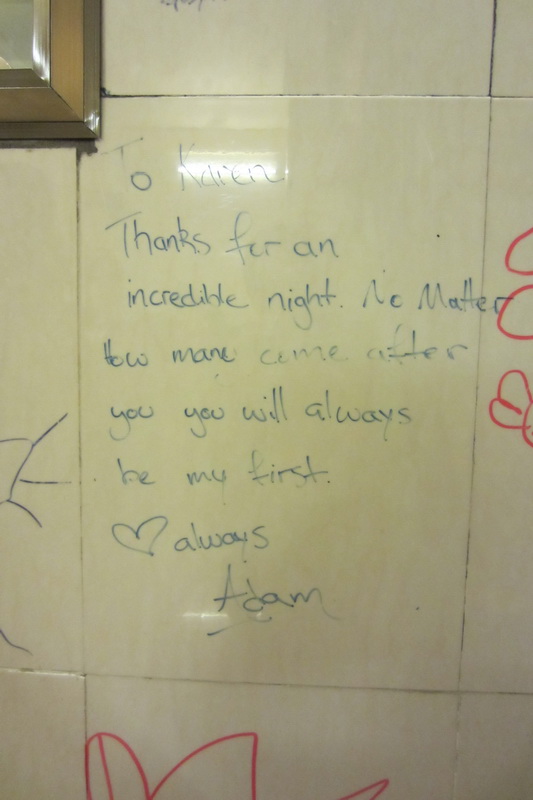 To Karen
Thanks for an
incredible night. No Matter
How many come after
you you will always
be my first.
♡ always
Adam